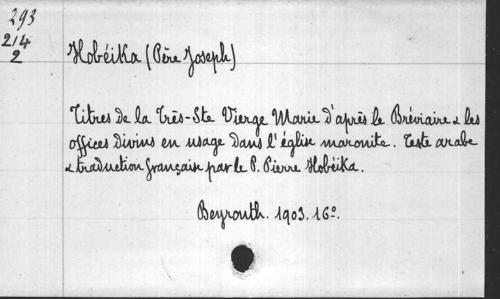 293
214
2
Hobéika (Père Joseph)
Titres de la Très-Ste Vierge Marie d'après le Bréviaire & les
offices divins en usage dans l'église maronite. Texte arabe
& traduction française par le P. Pierre Hobéika.
Beyrouth. 1903. 16º.